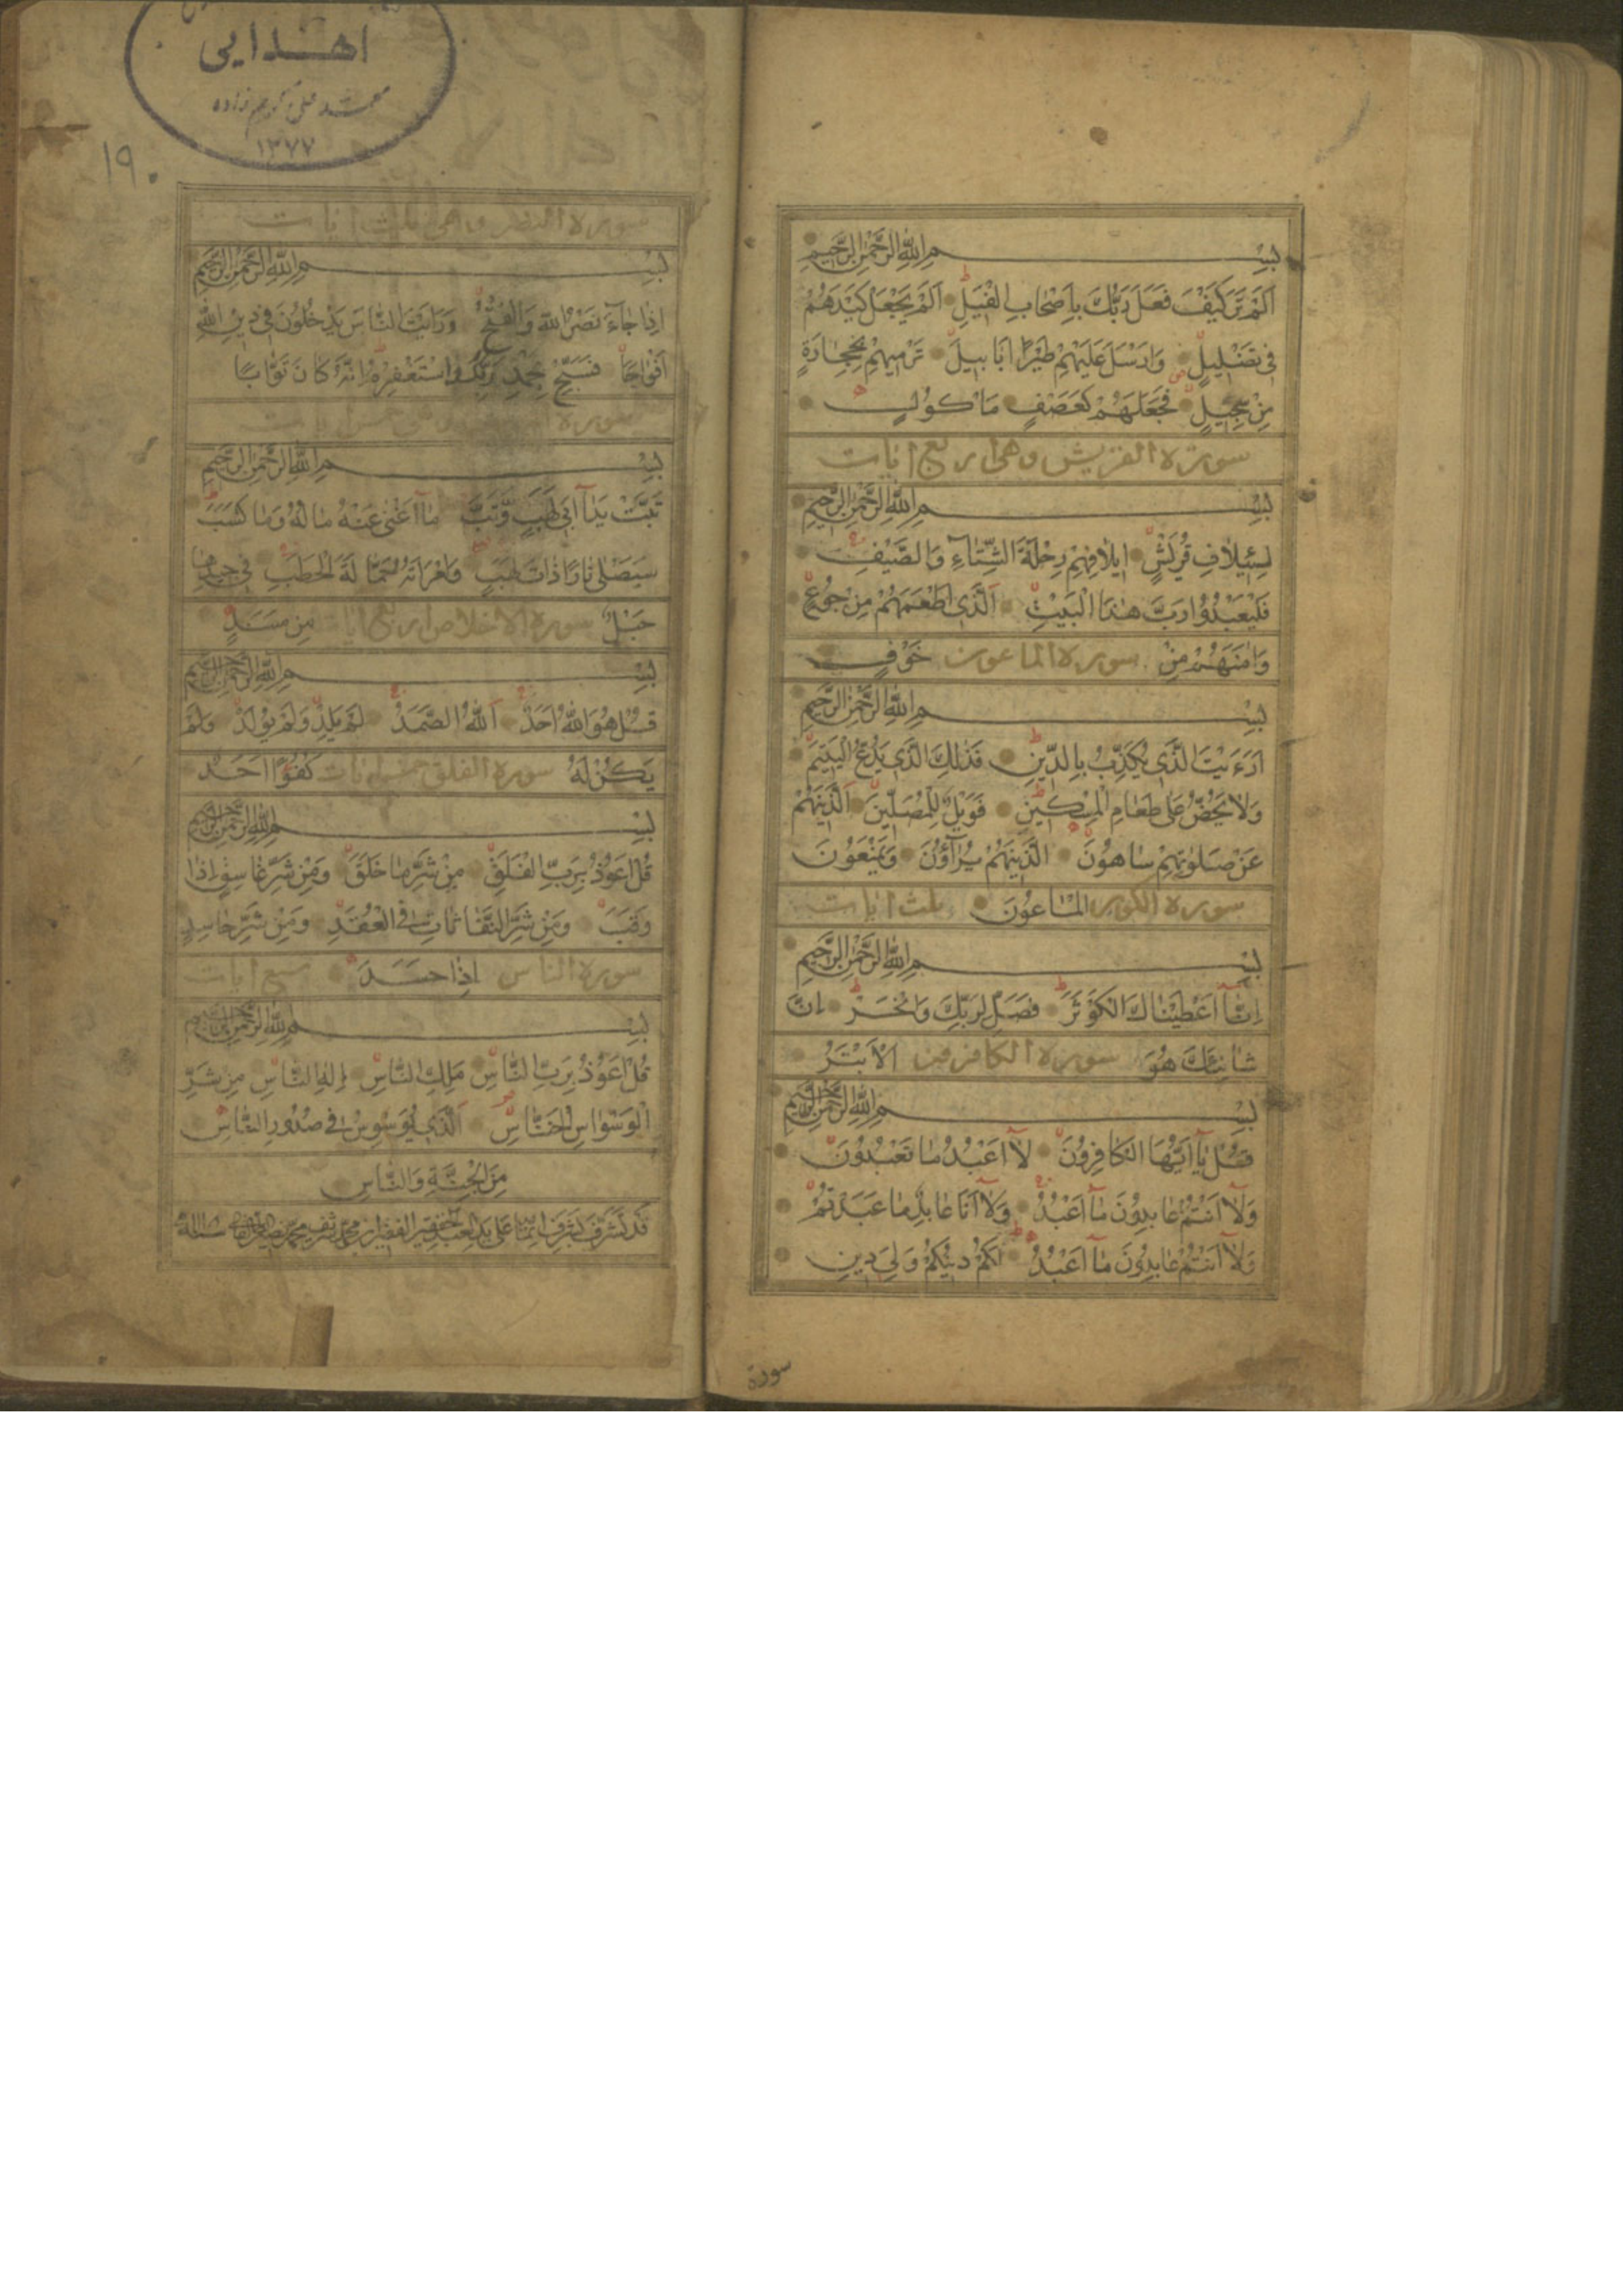 بِسْمِ اللّٰهِ الرَّحْمٰنِ الرَّحِيمِ
اَلَمْ تَرَ كَيْفَ فَعَلَ رَبُّكَ بِاَصْحٰابِ الْفِيلِ اَلَمْ يَجْعَلْ كَيْدَهُمْ
فِي تَضْلِيلٍ وَاَرْسَلَ عَلَيْهِمْ طَيْرًا اَبٰابِيلَ تَرْمِيهِمْ بِحِجٰارَةٍ
مِنْ سِجِّيلٍ فَجَعَلَهُمْ كَعَصْفٍ مَأْكُولٍ
سورة القريش وهي اربع ايات
بِسْمِ اللّٰهِ الرَّحْمٰنِ الرَّحِيمِ
لِئِيلٰافِ قُرَيْشٍ ايلٰافِهِمْ رِحْلَةَ الشِّتٰاءِ وَالصَّيْفِ
فَلْيَعْبُدُوا رَبَّ هٰذَا الْبَيْتِ اَلَّذِي اَطْعَمَهُمْ مِنْ جُوعٍ
وَاٰمَنَهُمْ مِنْ سورة الماعون خَوْفٍ
بِسْمِ اللّٰهِ الرَّحْمٰنِ الرَّحِيمِ
اَرَءَيْتَ الَّذِي يُكَذِّبُ بِالدِّينِ فَذٰلِكَ الَّذِي يَدُعُّ الْيَتِيمَ
وَلٰا يَحُضُّ عَلىٰ طَعٰامِ الْمِسْكِينِ فَوَيْلٌ لِلْمُصَلِّينَ اَلَّذِينَ هُمْ
عَنْ صَلٰوتِهِمْ سٰاهُونَ الَّذِينَ هُمْ يُرٰآؤُنَ وَيَمْنَعُونَ
سورة الكوثر الْمٰاعُونَ ثلث ايات
بِسْمِ اللّٰهِ الرَّحْمٰنِ الرَّحِيمِ
اِنّٰا اَعْطَيْنٰاكَ الْكَوْثَرَ فَصَلِّ لِرَبِّكَ وَانْحَرْ اِنَّ
شٰانِئَكَ هُوَ سورة الكافرون الْاَبْتَرُ
بِسْمِ اللّٰهِ الرَّحْمٰنِ الرَّحِيمِ
قُلْ يٰا اَيُّهَا الْكٰافِرُونَ لٰا اَعْبُدُ مٰا تَعْبُدُونَ
وَلٰا اَنْتُمْ عٰابِدُونَ مٰا اَعْبُدُ وَلٰا اَنَا عٰابِدٌ مٰا عَبَدْتُمْ
وَلٰا اَنْتُمْ عٰابِدُونَ مٰا اَعْبُدُ لَكُمْ دِينُكُمْ وَلِيَ دِينِ
سورة
اهدایی
۱۳۷۷
۱۹۰
سورة النصر وهي ثلث ايات
بِسْمِ اللّٰهِ الرَّحْمٰنِ الرَّحِيمِ
اِذٰا جٰاءَ نَصْرُ اللّٰهِ وَالْفَتْحُ وَرَاَيْتَ النّٰاسَ يَدْخُلُونَ فِي دِينِ اللّٰهِ
اَفْوٰاجًا فَسَبِّحْ بِحَمْدِ رَبِّكَ وَاسْتَغْفِرْهُ اِنَّهُ كٰانَ تَوّٰابًا
سورة
بِسْمِ اللّٰهِ الرَّحْمٰنِ الرَّحِيمِ
تَبَّتْ يَدٰا اَبِي لَهَبٍ وَتَبَّ مٰا اَغْنىٰ عَنْهُ مٰالُهُ وَمٰا كَسَبَ
سَيَصْلىٰ نٰارًا ذٰاتَ لَهَبٍ وَامْرَاَتُهُ حَمّٰالَةَ الْحَطَبِ فِي جِيدِهٰا
حَبْلٌ سورة الاخلاص اربع ايات مِنْ مَسَدٍ
بِسْمِ اللّٰهِ الرَّحْمٰنِ الرَّحِيمِ
قُلْ هُوَ اللّٰهُ اَحَدٌ اَللّٰهُ الصَّمَدُ لَمْ يَلِدْ وَلَمْ يُولَدْ وَلَمْ
يَكُنْ لَهُ سورة الفلق خمس ايات كُفُوًا اَحَدٌ
بِسْمِ اللّٰهِ الرَّحْمٰنِ الرَّحِيمِ
قُلْ اَعُوذُ بِرَبِّ الْفَلَقِ مِنْ شَرِّ مٰا خَلَقَ وَمِنْ شَرِّ غٰاسِقٍ اِذٰا
وَقَبَ وَمِنْ شَرِّ النَّفّٰاثٰاتِ فِي الْعُقَدِ وَمِنْ شَرِّ حٰاسِدٍ
سورة الناس اِذٰا حَسَدَ سبع ايات
بِسْمِ اللّٰهِ الرَّحْمٰنِ الرَّحِيمِ
قُلْ اَعُوذُ بِرَبِّ النّٰاسِ مَلِكِ النّٰاسِ اِلٰهِ النّٰاسِ مِنْ شَرِّ
الْوَسْوٰاسِ الْخَنّٰاسِ اَلَّذِي يُوَسْوِسُ فِي صُدُورِ النّٰاسِ
مِنَ الْجِنَّةِ وَالنّٰاسِ
قد تشرف بشرف اتمامها على يد العبد الحقير الفقير ابن محمد شريف محمد